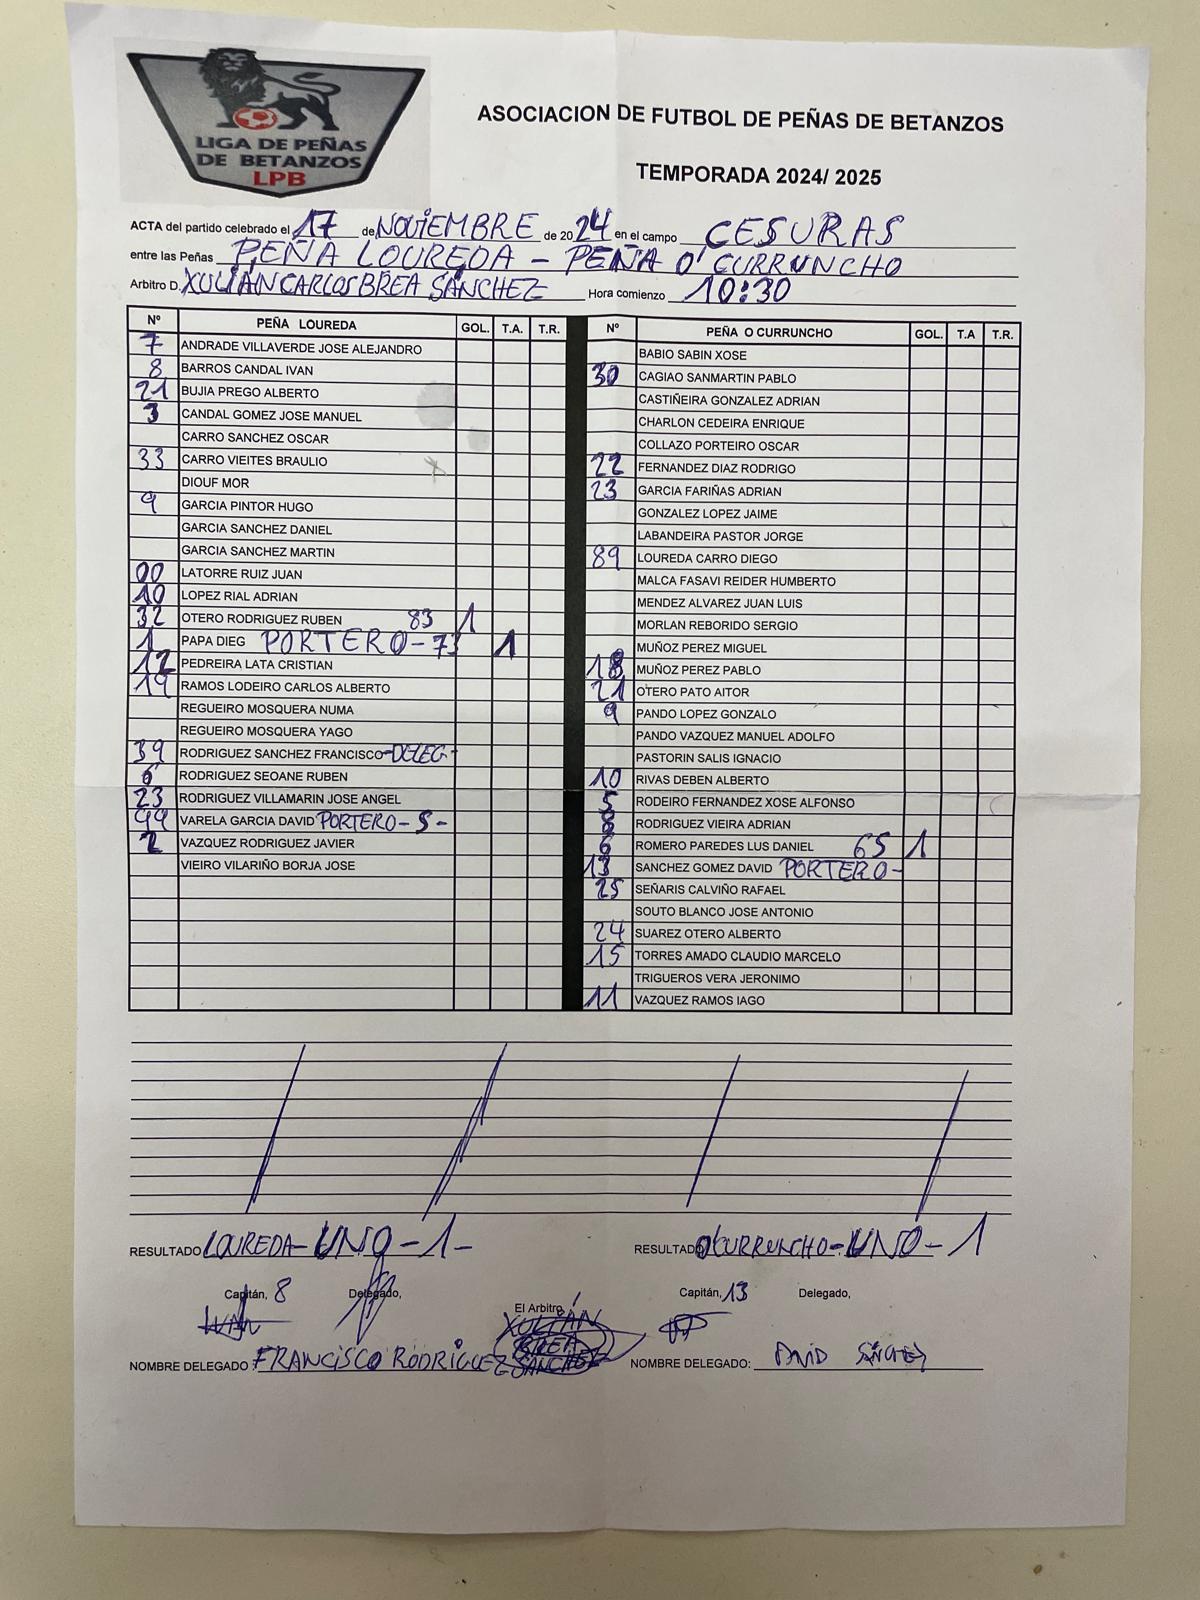 LIGA DE PEÑAS
DE BETANZOS
LPB
ASOCIACION DE FUTBOL DE PEÑAS DE BETANZOS
TEMPORADA 2024/ 2025
ACTA del partido celebrado el 17 de NOVIEMBRE de 2024 en el campo CESURAS
entre las Peñas PEÑA LOUREDA - PEÑA O' CURRUNCHO
Arbitro D. XULIÁN CARLOS BREA SÁNCHEZ Hora comienzo 10:30
Nº PEÑA LOUREDA GOL. T.A. T.R.
7 ANDRADE VILLAVERDE JOSE ALEJANDRO
8 BARROS CANDAL IVAN
21 BUJIA PREGO ALBERTO
3 CANDAL GOMEZ JOSE MANUEL
CARRO SANCHEZ OSCAR
33 CARRO VIEITES BRAULIO
DIOUF MOR
9 GARCIA PINTOR HUGO
GARCIA SANCHEZ DANIEL
GARCIA SANCHEZ MARTIN
00 LATORRE RUIZ JUAN
10 LOPEZ RIAL ADRIAN
32 OTERO RODRIGUEZ RUBEN 83 1
1 PAPA DIEG PORTERO- 73 1
12 PEDREIRA LATA CRISTIAN
19 RAMOS LODEIRO CARLOS ALBERTO
REGUEIRO MOSQUERA NUMA
REGUEIRO MOSQUERA YAGO
39 RODRIGUEZ SANCHEZ FRANCISCO-DELEG-
6 RODRIGUEZ SEOANE RUBEN
23 RODRIGUEZ VILLAMARIN JOSE ANGEL
99 VARELA GARCIA DAVID PORTERO- S -
2 VAZQUEZ RODRIGUEZ JAVIER
VIEIRO VILARIÑO BORJA JOSE
Nº PEÑA O CURRUNCHO GOL. T.A T.R.
BABIO SABIN XOSE
30 CAGIAO SANMARTIN PABLO
CASTIÑEIRA GONZALEZ ADRIAN
CHARLON CEDEIRA ENRIQUE
COLLAZO PORTEIRO OSCAR
22 FERNANDEZ DIAZ RODRIGO
23 GARCIA FARIÑAS ADRIAN
GONZALEZ LOPEZ JAIME
LABANDEIRA PASTOR JORGE
89 LOUREDA CARRO DIEGO
MALCA FASAVI REIDER HUMBERTO
MENDEZ ALVAREZ JUAN LUIS
MORLAN REBORIDO SERGIO
MUÑOZ PEREZ MIGUEL
18 MUÑOZ PEREZ PABLO
21 OTERO PATO AITOR
9 PANDO LOPEZ GONZALO
PANDO VAZQUEZ MANUEL ADOLFO
PASTORIN SALIS IGNACIO
10 RIVAS DEBEN ALBERTO
5 RODEIRO FERNANDEZ XOSE ALFONSO
8 RODRIGUEZ VIEIRA ADRIAN
6 ROMERO PAREDES LUS DANIEL 65 1
13 SANCHEZ GOMEZ DAVID PORTERO-
25 SEÑARIS CALVIÑO RAFAEL
SOUTO BLANCO JOSE ANTONIO
24 SUAREZ OTERO ALBERTO
15 TORRES AMADO CLAUDIO MARCELO
TRIGUEROS VERA JERONIMO
11 VAZQUEZ RAMOS IAGO
RESULTADO LOUREDA- UNO - 1 -
RESULTADO O'CURRUNCHO- UNO - 1
Capitán, 8 Delegado,
El Arbitro,
XULIÁN
BREA
SÁNCHEZ
Capitán, 13 Delegado,
NOMBRE DELEGADO FRANCISCO RODRIGUEZ
NOMBRE DELEGADO: DAVID SÁNCHEZ